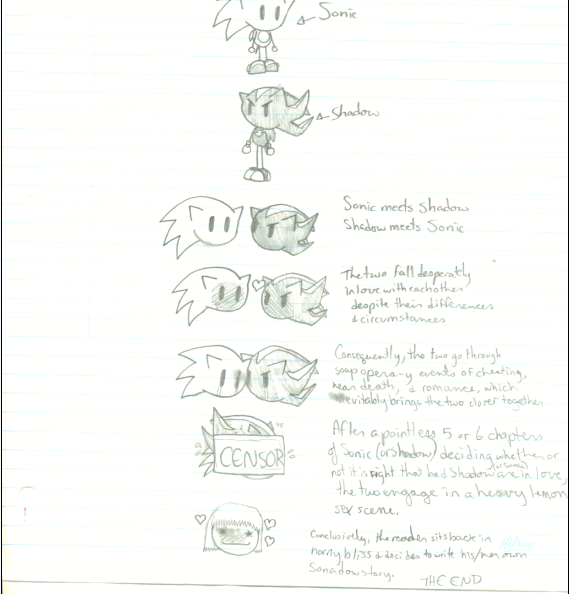 Sonic
Shadow
Sonic meets Shadow
Shadow meets Sonic
The two fall desperately
in love with eachother
despite their differences
& circumstances
Consequently, the two go through
soap opera-y events of cheating,
near death, & romance, which
inevitably brings the two closer together
After a pointless 5 or 6 chapters
of Sonic (or Shadow) deciding whether or
not it is right that he & Shadow (or Sonic) are in love,
the two engage in a heavy lemon
sex scene.
CENSOR
Conclusively, the reader sits back in
horny bliss & decides to write his/her own
Sonadow story.
THE END